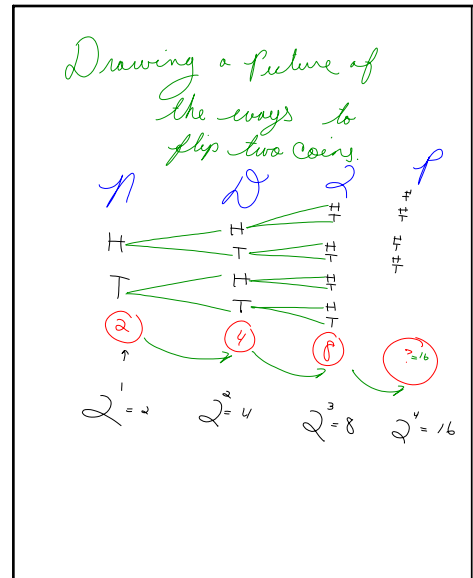 Drawing a Picture of
the ways to
flip two coins.
N D Q P
H
H H T
H T
H T H H T
T
T H H H T
T
T H H T
T
2 4 8 ? = 16
2^1 = 2 2^2 = 4 2^3 = 8 2^4 = 16